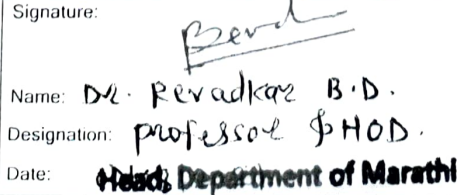 Signature:
Name: Dr. Revadkar B.D.
Designation: professor & HOD.
Date: Head, Department of Marathi